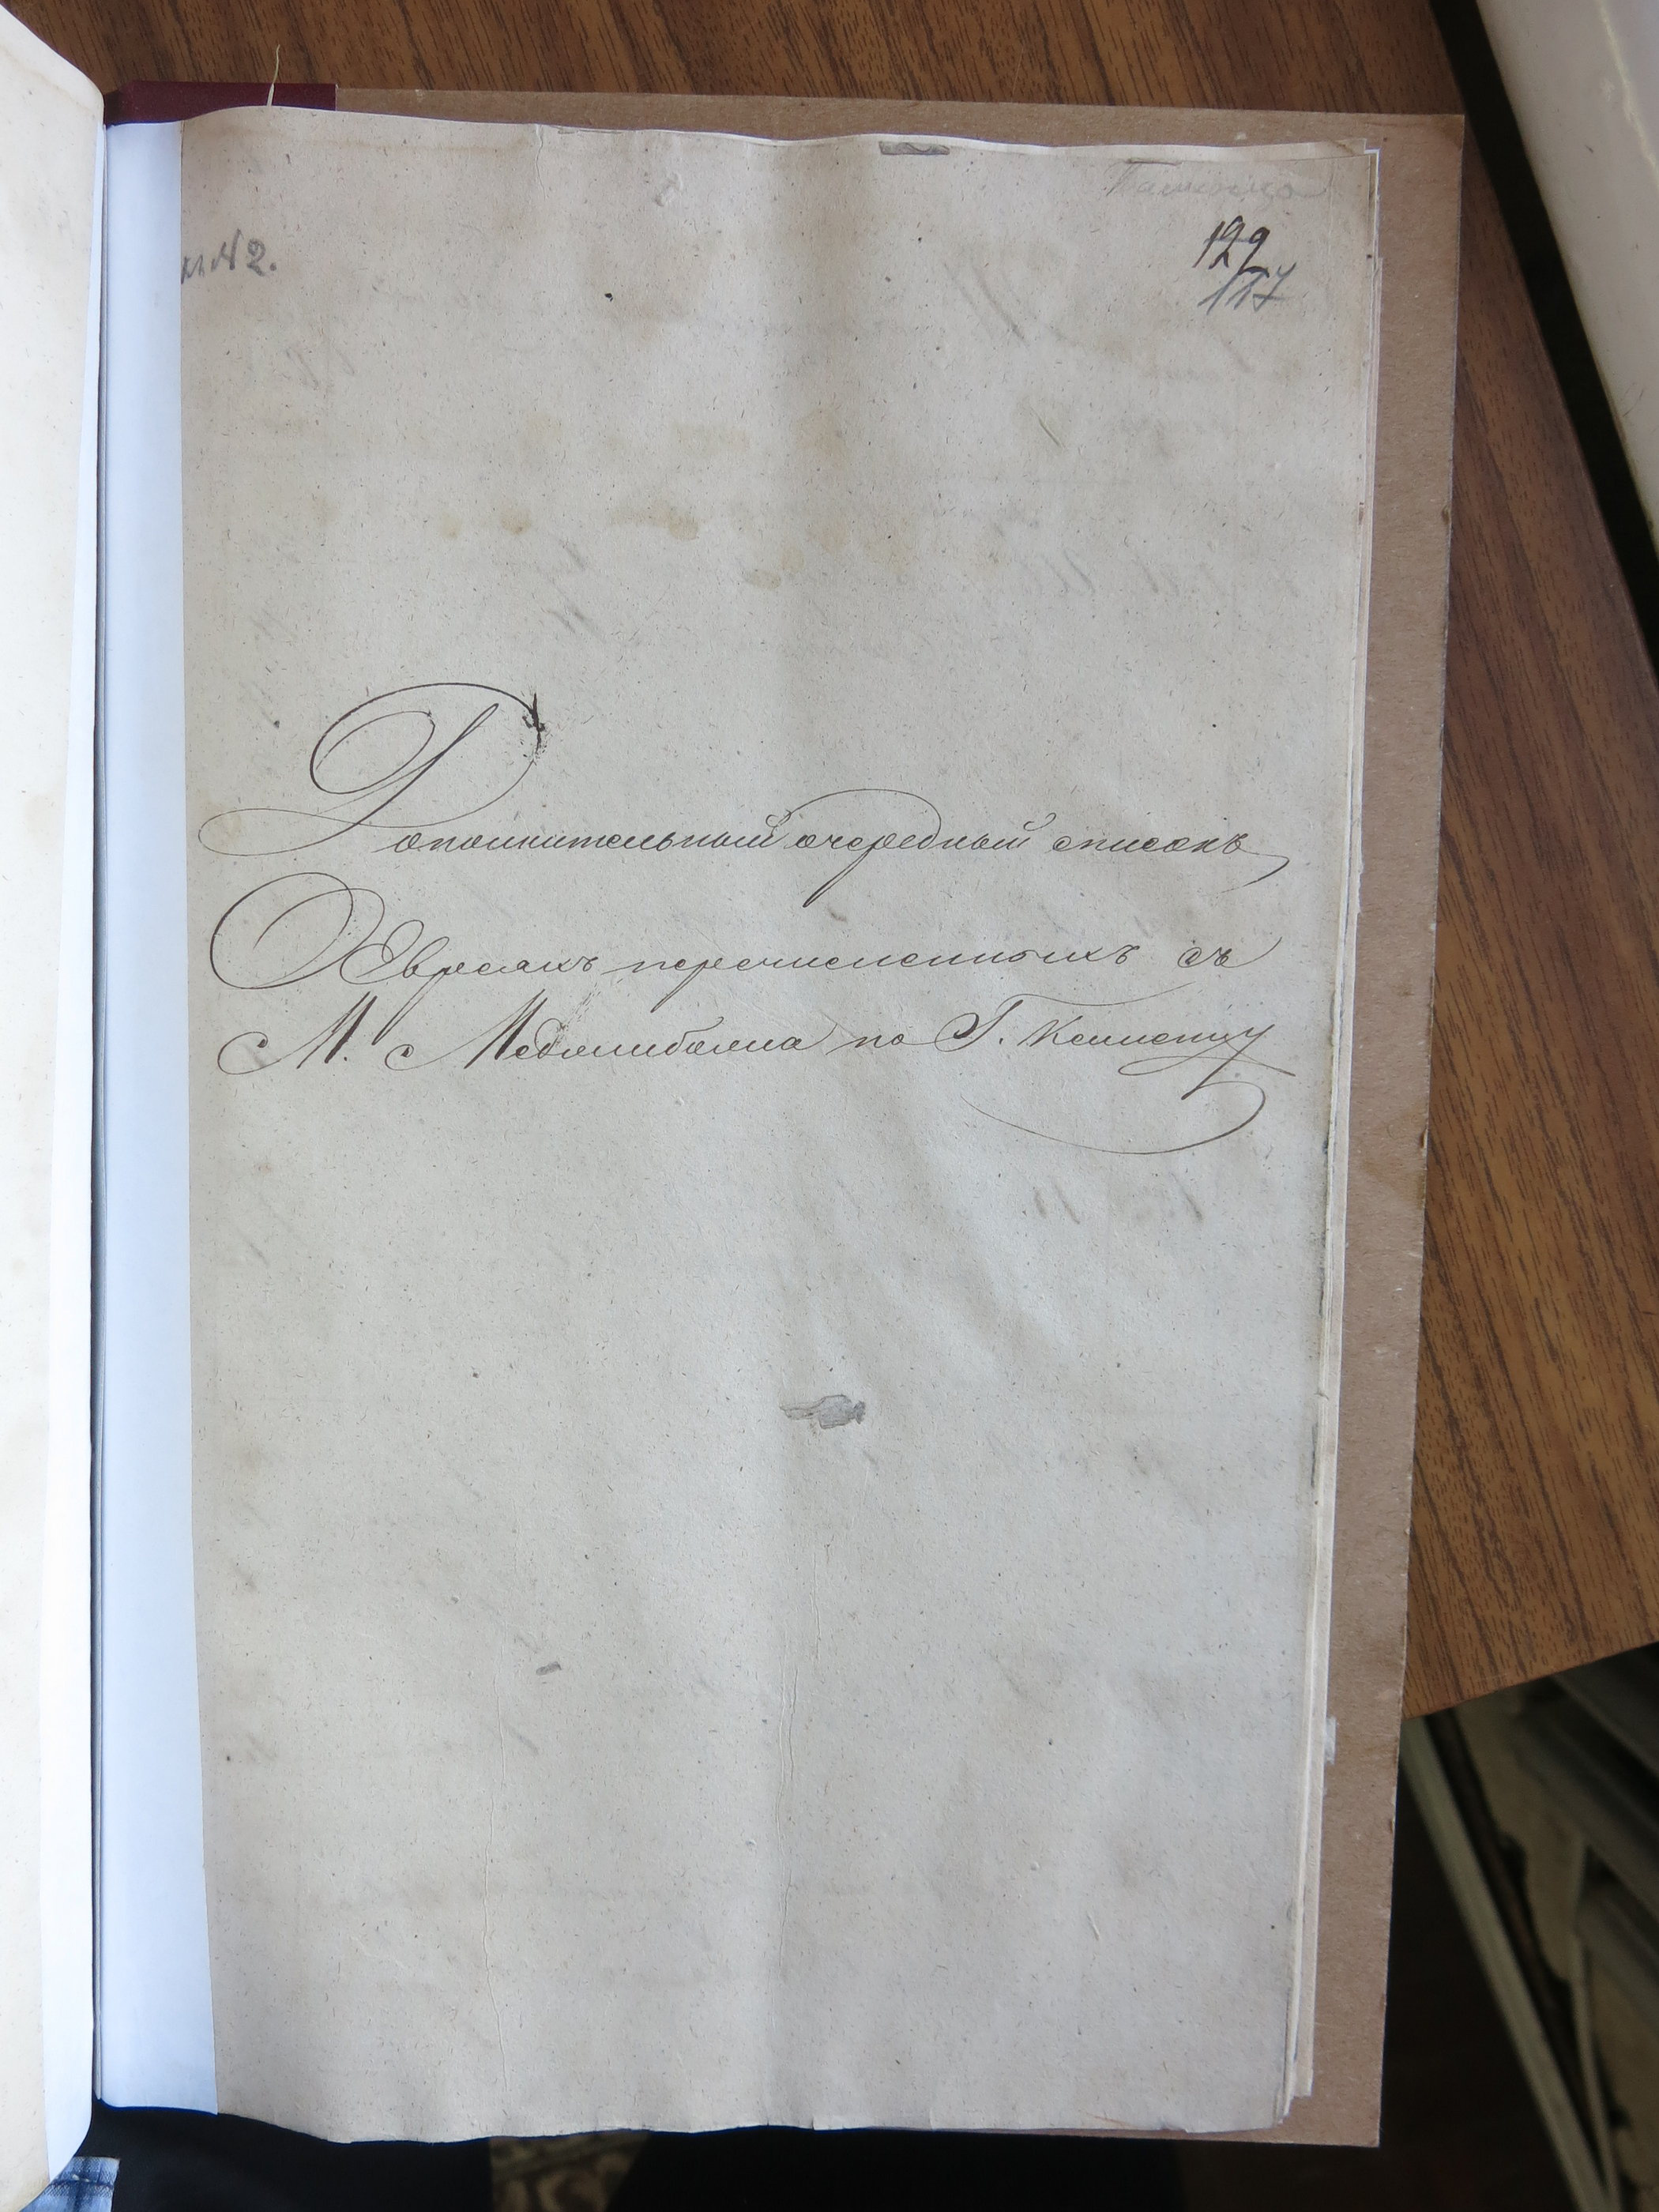 № 2.
122
117
Дополнительный очередный списокъ
О Евреахъ перечисленныхъ съ
М. Меджибожа по Г. Каменцу